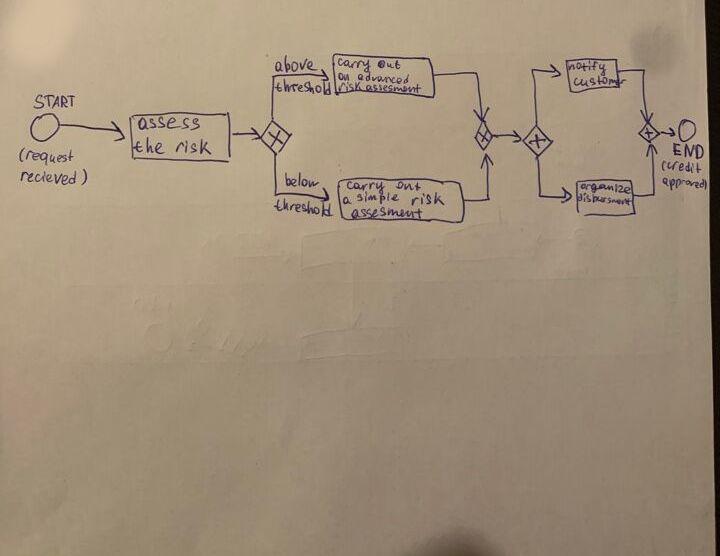 START
(request
recieved)
assess
the risk
above
threshold
carry out
an advanced
risk assesment
below
threshold
carry out
a simple risk
assesment
notify
customer
organize
disbursment
END
(credit
approved)